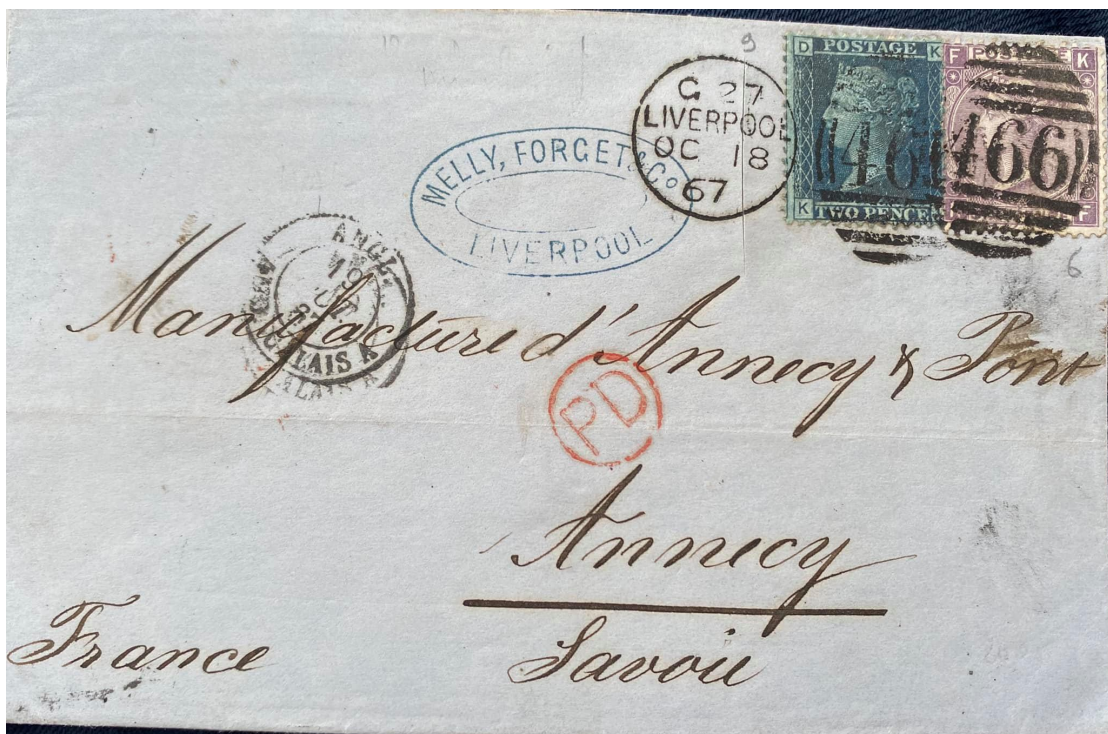 9
D POSTAGE K
K TWO PENCE
F POSTAGE K
F
466
466
G 27
LIVERPOOL
OC 18
67
MELLY, FORGET & Co
LIVERPOOL
ANGL.
19
67
CALAIS A
6
Manufacture d'Annecy & Pont
PD
Annecy
Savoie
France